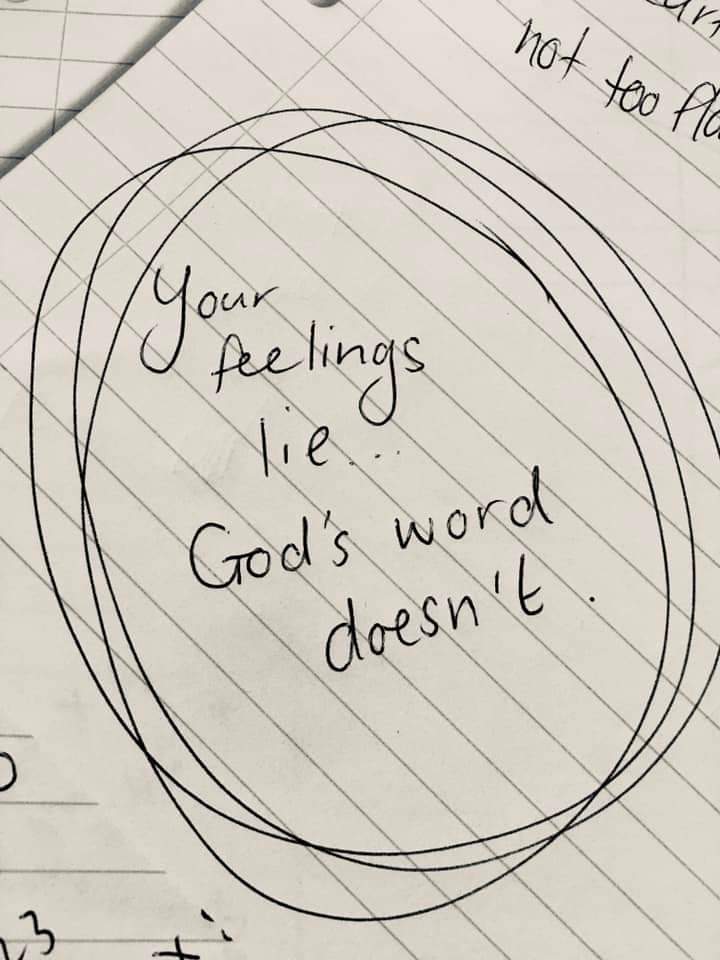 not too
Your
feelings
lie...
God's word
doesn't.